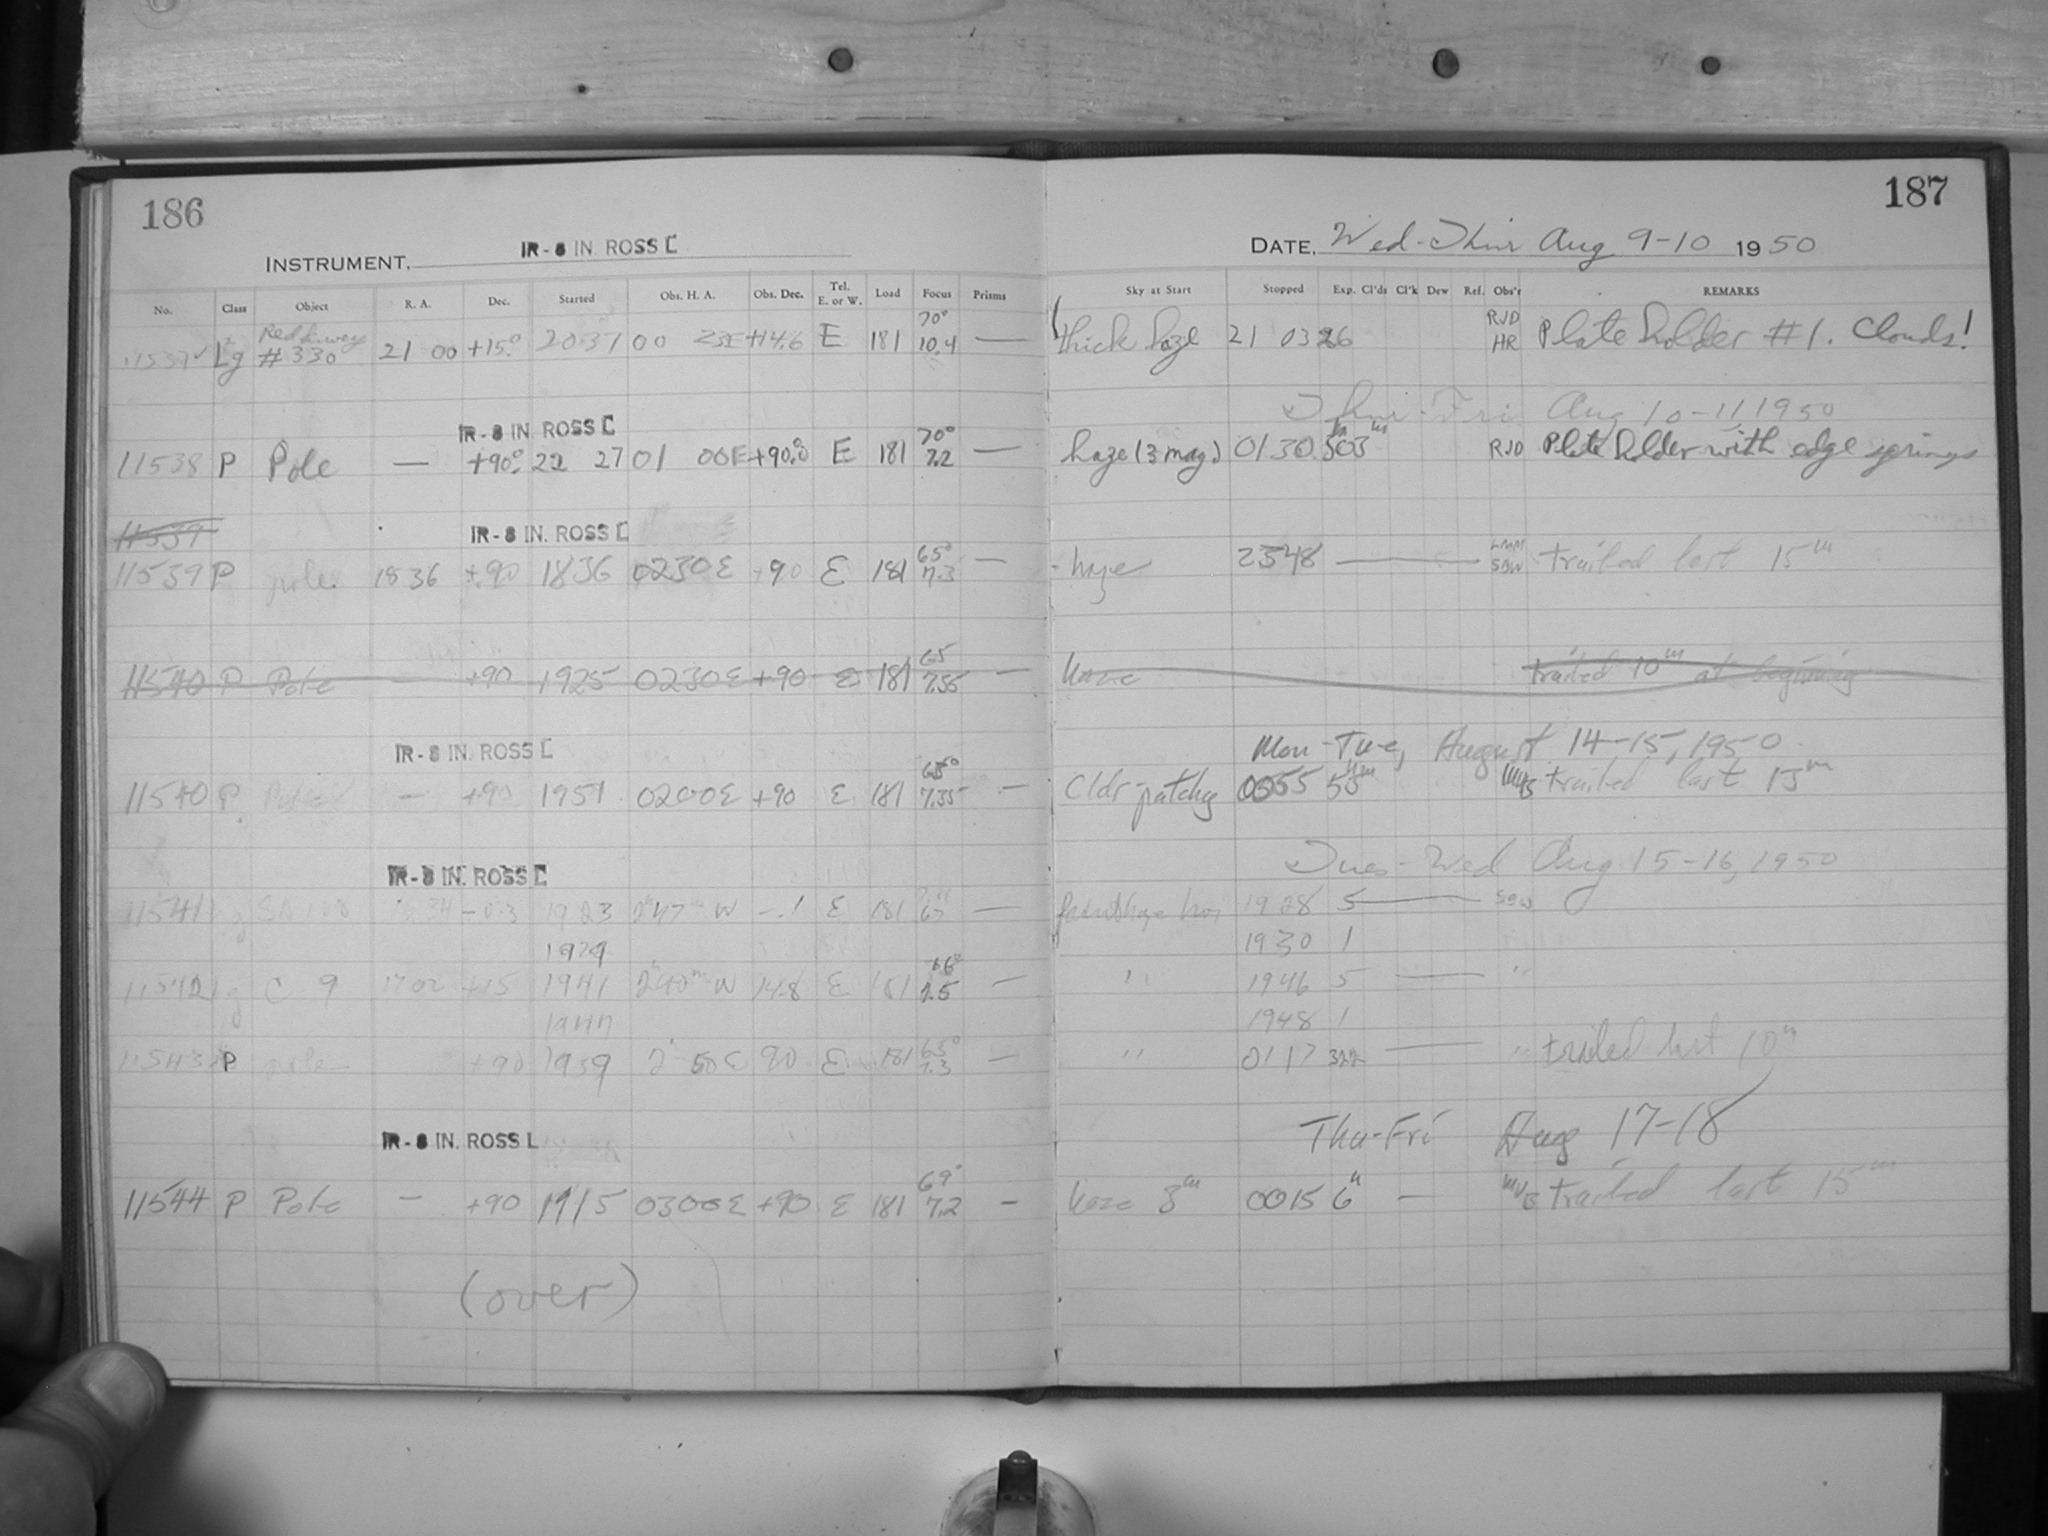 186
187
INSTRUMENT, IR - 8 IN. ROSS L
DATE, Wed-Thur Aug 9-10 1950
No. Class Object R. A. Dec. Started Obs. H. A. Obs. Dec. Tel. E. or W. Load Focus Prisms Sky at Start Stopped Exp. Cl'ds Cl'k Dew Ref. Obs'r REMARKS
70° RJD
11537 Lg #330 21 00 +15.° 2037 00 23E +14.6 E 181 10.4 — thick haze 21 03 26 HR Plate holder #1. Clouds!
Thur-Fri Aug 10-11 1950
IR - 8 IN. ROSS L
70°
11538 P Pole — +90.° 22 27 01 00E +90.0 E 181 7.2 — haze (3 mag) 0130 RJD Plate holder with edge springs
11539
IR - 8 IN. ROSS L
65°
11539 P pole 1836 +90 1836 0230E +90 E 181 7.3 — haze 2348 — SBW trailed last 15m
65
11540 P Pole — +90 1925 0230E +90 E 181 7.55 — haze trailed 10m at begining
Mon-Tue, August 14-15, 1950
IR - 8 IN. ROSS L
65°
11540 P Pole — +90 1951 0200E +90 E 181 7.35 — Cldr-patchy 0055 MVB trailed last 15m
Tues-Wed Aug 15-16, 1950
IR - 8 IN. ROSS L
11541 lg SA 108 -0.3 1923 2h47m W -.1 E 181 — 1928 5 — SBW
1929 1930 1
66°
11542 lg C 9 1702 +15 1941 2h40m W 14.8 E 181 7.5 — " 1946 5 — "
1948 1
65°
11543 P pole +90 1959 2 50E 90 E 181 7.3 — " 0117 322 — " trailed last 10m
Thu-Fri Aug 17-18
IR - 8 IN. ROSS L
69°
11544 P Pole — +90 1915 0300E +90 E 181 7.2 — haze 3m 0015 6h — MVB trailed last 15m
(over)